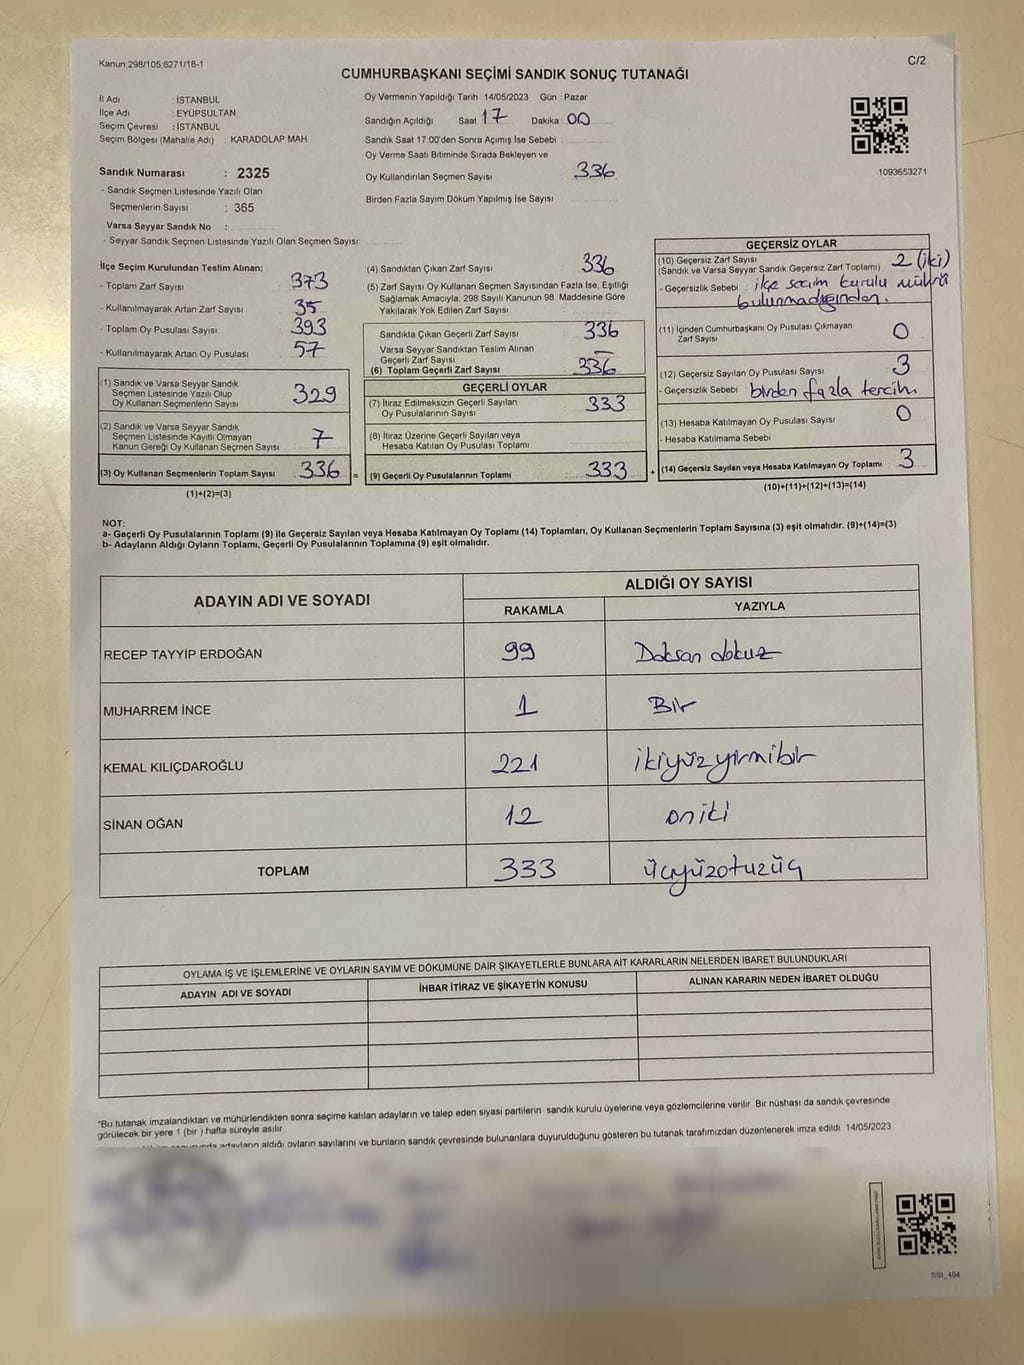 Kanun;298/105;6271/18-1
C/2
CUMHURBAŞKANI SEÇİMİ SANDIK SONUÇ TUTANAĞI
İl Adı : İSTANBUL
İlçe Adı : EYÜPSULTAN
Seçim Çevresi : İSTANBUL
Seçim Bölgesi (Mahalle Adı) : KARADOLAP MAH.
Sandık Numarası : 2325
- Sandık Seçmen Listesinde Yazılı Olan
Seçmenlerin Sayısı : 365
Varsa Seyyar Sandık No :
- Seyyar Sandık Seçmen Listesinde Yazılı Olan Seçmen Sayısı:
Oy Vermenin Yapıldığı Tarih : 14/05/2023 Gün : Pazar
Sandığın Açıldığı Saat 17 Dakika 00
Sandık Saat 17:00'den Sonra Açımış İse Sebebi :
Oy Verme Saati Bitiminde Sırada Bekleyen ve
Oy Kullandırılan Seçmen Sayısı : 336
Birden Fazla Sayım Döküm Yapılmış İse Sayısı :
1093653271
İlçe Seçim Kurulundan Teslim Alınan;
- Toplam Zarf Sayısı : 373
- Kullanılmayarak Artan Zarf Sayısı : 35
- Toplam Oy Pusulası Sayısı : 393
- Kullanılmayarak Artan Oy Pusulası : 57
(1) Sandık ve Varsa Seyyar Sandık
Seçmen Listesinde Yazılı Olup
Oy Kullanan Seçmenlerin Sayısı : 329
(2) Sandık ve Varsa Seyyar Sandık
Seçmen Listesinde Kayıtlı Olmayan
Kanun Gereği Oy Kullanan Seçmen Sayısı : 7
(3) Oy Kullanan Seçmenlerin Toplam Sayısı : 336 =
(1)+(2)=(3)
(4) Sandıktan Çıkan Zarf Sayısı : 336
(5) Zarf Sayısı Oy Kullanan Seçmen Sayısından Fazla İse, Eşitliği
Sağlamak Amacıyla, 298 Sayılı Kanunun 98. Maddesine Göre
Yakılarak Yok Edilen Zarf Sayısı :
Sandıkta Çıkan Geçerli Zarf Sayısı : 336
Varsa Seyyar Sandıktan Teslim Alınan
Geçerli Zarf Sayısı : –
(6) Toplam Geçerli Zarf Sayısı : 336
GEÇERLİ OYLAR
(7) İtiraz Edilmeksizin Geçerli Sayılan
Oy Pusulalarının Sayısı : 333
(8) İtiraz Üzerine Geçerli Sayılan veya
Hesaba Katılan Oy Pusulası Toplamı :
(9) Geçerli Oy Pusulalarının Toplamı : 333 +
GEÇERSİZ OYLAR
(10) Geçersiz Zarf Sayısı
(Sandık ve Varsa Seyyar Sandık Geçersiz Zarf Toplamı) : 2 (iki)
- Geçersizlik Sebebi : ilçe seçim kurulu mührü
bulunmadığından.
(11) İçinden Cumhurbaşkanı Oy Pusulası Çıkmayan
Zarf Sayısı : 0
(12) Geçersiz Sayılan Oy Pusulası Sayısı : 3
- Geçersizlik Sebebi : birden fazla tercih
(13) Hesaba Katılmayan Oy Pusulası Sayısı : 0
- Hesaba Katılmama Sebebi
(14) Geçersiz Sayılan veya Hesaba Katılmayan Oy Toplamı : 3
(10)+(11)+(12)+(13)=(14)
NOT:
a- Geçerli Oy Pusulalarının Toplamı (9) ile Geçersiz Sayılan veya Hesaba Katılmayan Oy Toplamı (14) Toplamları, Oy Kullanan Seçmenlerin Toplam Sayısına (3) eşit olmalıdır. (9)+(14)=(3)
b- Adayların Aldığı Oyların Toplamı, Geçerli Oy Pusulalarının Toplamına (9) eşit olmalıdır.
ADAYIN ADI VE SOYADI
ALDIĞI OY SAYISI
RAKAMLA YAZIYLA
RECEP TAYYİP ERDOĞAN 99 Doksan dokuz
MUHARREM İNCE 1 Bir
KEMAL KILIÇDAROĞLU 221 ikiyüzyirmibir
SİNAN OĞAN 12 oniki
TOPLAM 333 üçyüzotuzüç
OYLAMA İŞ VE İŞLEMLERİNE VE OYLARIN SAYIM VE DÖKÜMÜNE DAİR ŞİKAYETLERLE BUNLARA AİT KARARLARIN NELERDEN İBARET BULUNDUKLARI
ADAYIN ADI VE SOYADI İHBAR İTİRAZ VE ŞİKAYETİN KONUSU ALINAN KARARIN NEDEN İBARET OLDUĞU
*Bu tutanak imzalandıktan ve mühürlendikten sonra seçime katılan adayların ve talep eden siyasi partilerin sandık kurulu üyelerine veya gözlemcilerine verilir. Bir nüshası da sandık çevresinde
görülecek bir yere 1 (bir ) hafta süreyle asılır.
adayların aldığı oyların sayılarını ve bunların sandık çevresinde bulunanlara duyurulduğunu gösteren bu tutanak tarafımızdan düzenlenerek imza edildi. 14/05/2023
BSI_404